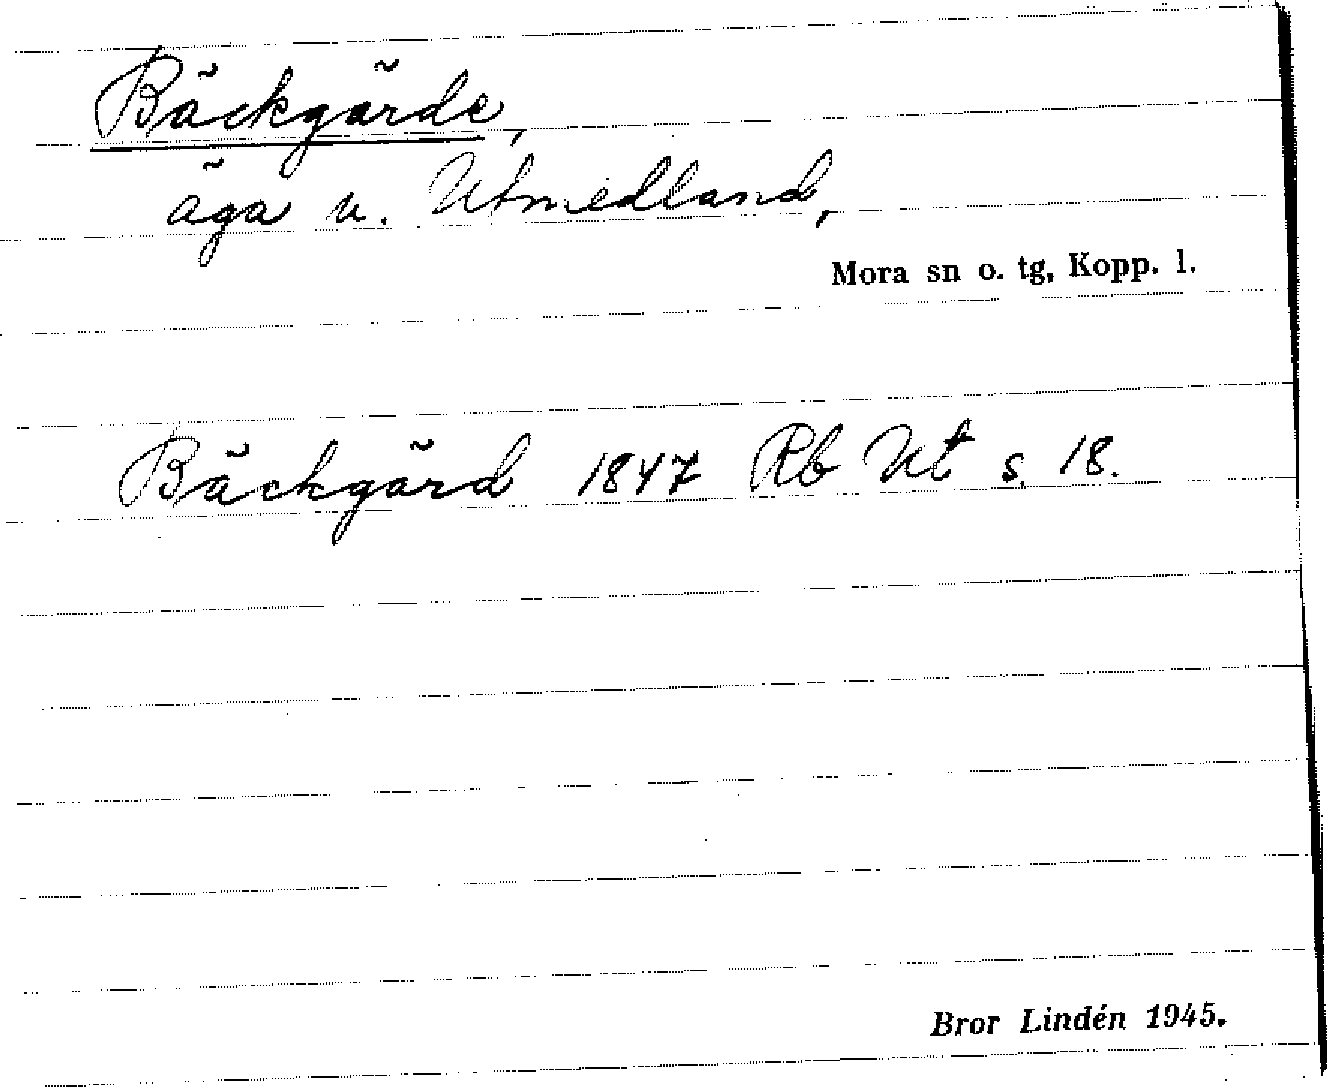 Bäckgärde,
äga u. Utmedland,
Mora sn o. tg, Kopp. l.
Bäckgärd 1847 Rb Ut s. 18.
Bror Lindén 1945.